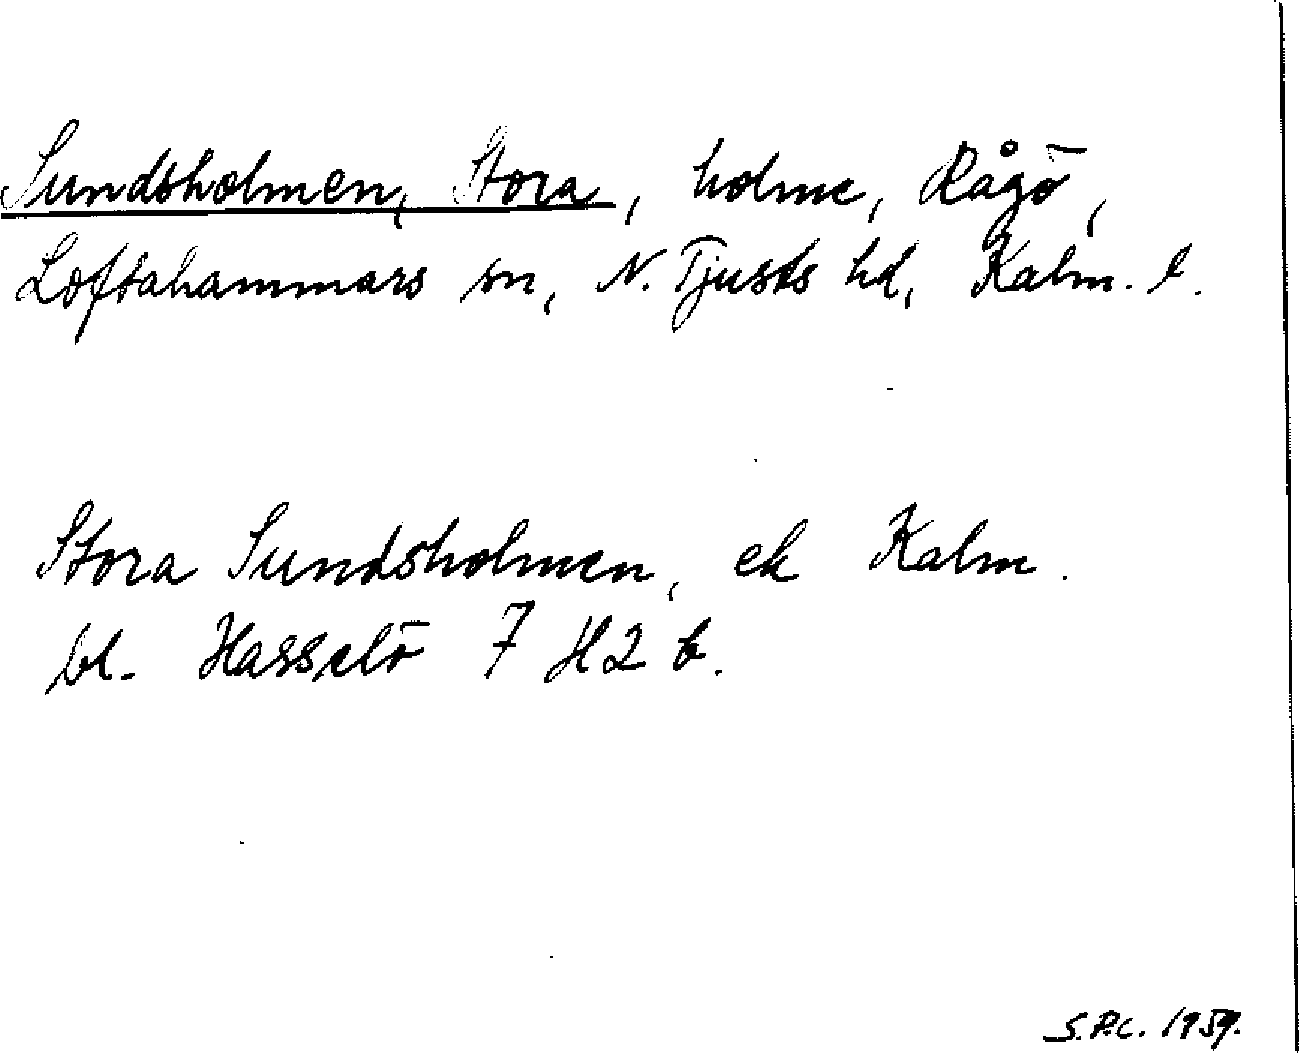 Sundsholmen, Stora, holme, Rågö,
Loftahammars sn, N. Tjusts hd, Kalm. l.
Stora Sundsholmen, ek Kalm.
bl. Hasselö 7 H 2 b.
S.P.C. 1959.